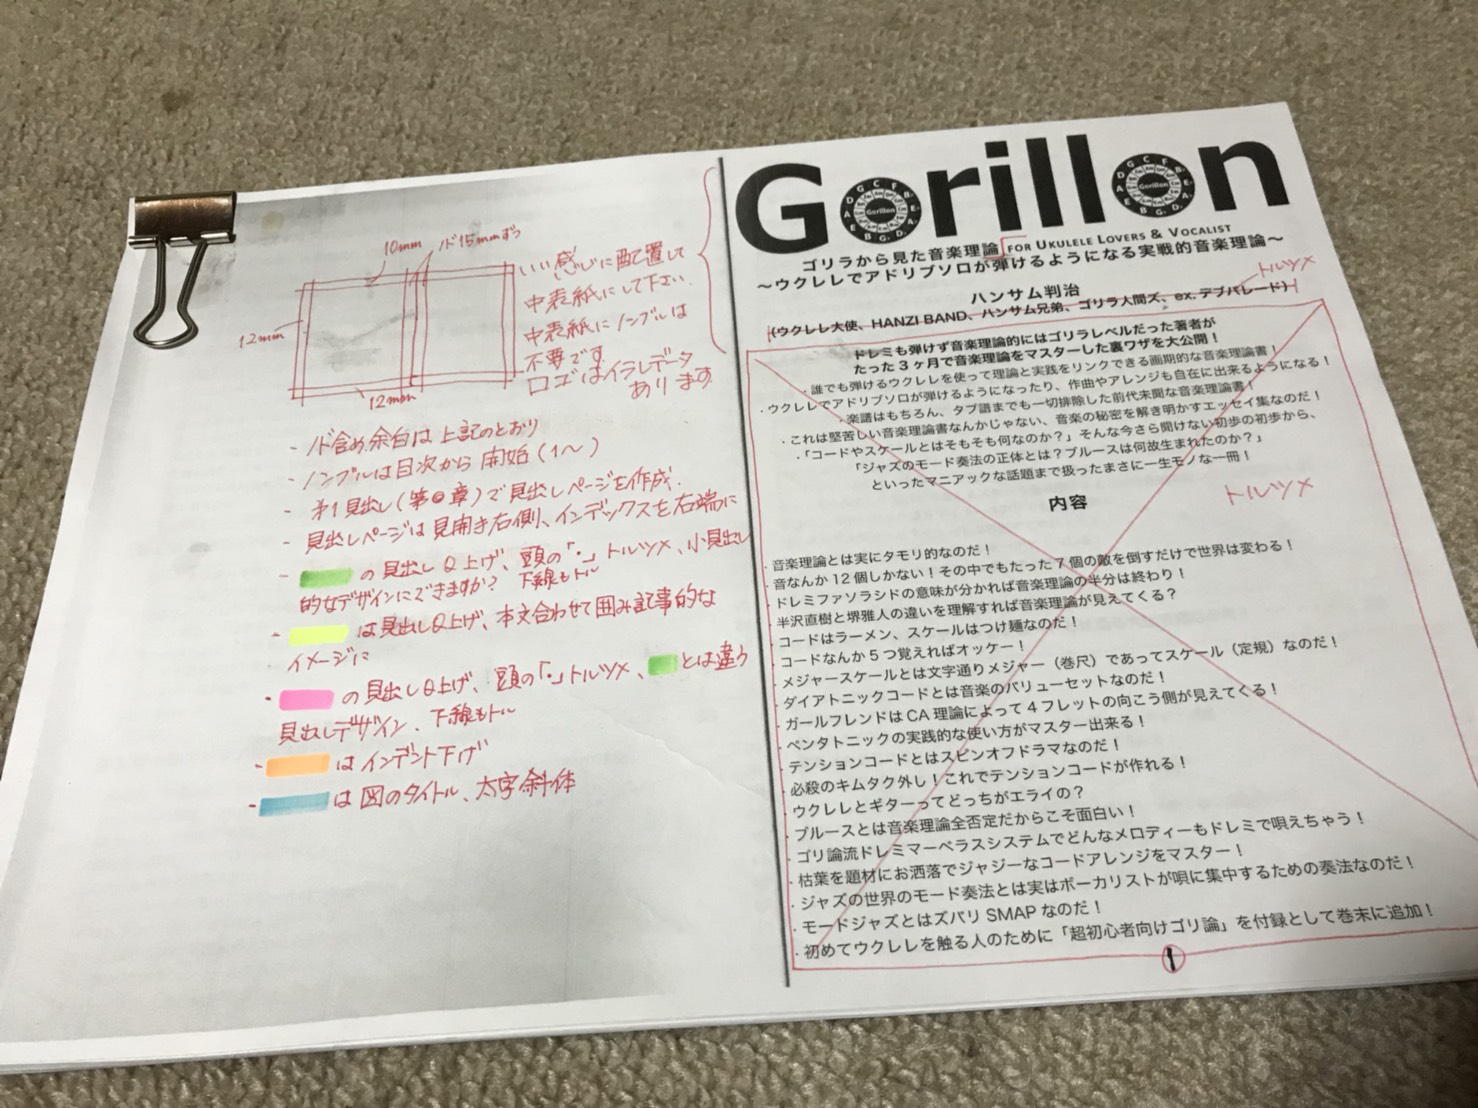 10mm
ノド15mmずつ
12mm
12mm
いい感じに配置して
中表紙にして下さい.
中表紙にノンブルは
不要です
ロゴはイラレデータ
あります
- ノド含め余白は上記のとおり
- ノンブルは目次から開始(1〜)
- 第1見出し(第●章)で見出しページを作成.
- 見出しページは見開き右側、インデックスを右端に
- の見出しQ上げ、頭の「・」トルツメ、小見出し
的なデザインにできますか? 下線もトル
- は見出しQ上げ、本文合わせて囲み記事的な
イメージに
- の見出しQ上げ、頭の「・」トルツメ、とは違う
見出しデザイン、下線もトル
- はインデント下げ
- は図のタイトル、太字斜体
Gorillon
ゴリラから見た音楽理論 FOR UKULELE LOVERS & VOCALIST
〜ウクレレでアドリブソロが弾けるようになる実戦的音楽理論〜
トルツメ
ハンサム判治
(ウクレレ大使、HANZI BAND、ハンサム兄弟、ゴリラ人間ズ、ex. デブパレード)
ドレミも弾けず音楽理論的にはゴリラレベルだった著者が
たった3ヶ月で音楽理論をマスターした裏ワザを大公開!
・誰でも弾けるウクレレを使って理論と実践をリンクできる画期的な音楽理論書!
・ウクレレでアドリブソロが弾けるようになったり、作曲やアレンジも自在に出来るようになる!
・楽譜はもちろん、タブ譜までも一切排除した前代未聞な音楽理論書!
・これは堅苦しい音楽理論書なんかじゃない、音楽の秘密を解き明かすエッセイ集なのだ!
・「コードやスケールとはそもそも何なのか?」そんな今さら聞けない初歩の初歩から、
「ジャズのモード奏法の正体とは?ブルースは何故生まれたのか?」
といったマニアックな話題まで扱ったまさに一生モノな一冊!
トルツメ
内容
・音楽理論とは実にタモリ的なのだ!
・音なんか12個しかない!その中でもたった7個の敵を倒すだけで世界は変わる!
・ドレミファソラシドの意味が分かれば音楽理論の半分は終わり!
・半沢直樹と堺雅人の違いを理解すれば音楽理論が見えてくる?
・コードはラーメン、スケールはつけ麺なのだ!
・コードなんか5つ覚えればオッケー!
・メジャースケールとは文字通りメジャー(巻尺)であってスケール(定規)なのだ!
・ダイアトニックコードとは音楽のバリューセットなのだ!
・ガールフレンドはCA理論によって4フレットの向こう側が見えてくる!
・ペンタトニックの実践的な使い方がマスター出来る!
・テンションコードとはスピンオフドラマなのだ!
・必殺のキムタク外し!これでテンションコードが作れる!
・ウクレレとギターってどっちがエライの?
・ブルースとは音楽理論全否定だからこそ面白い!
・ゴリ論流ドレミマーベラスシステムでどんなメロディーもドレミで唄えちゃう!
・枯葉を題材にお洒落でジャジーなコードアレンジをマスター!
・ジャズの世界のモード奏法とは実はボーカリストが唄に集中するための奏法なのだ!
・モードジャズとはズバリSMAPなのだ!
・初めてウクレレを触る人のために「超初心者向けゴリ論」を付録として巻末に追加!
1